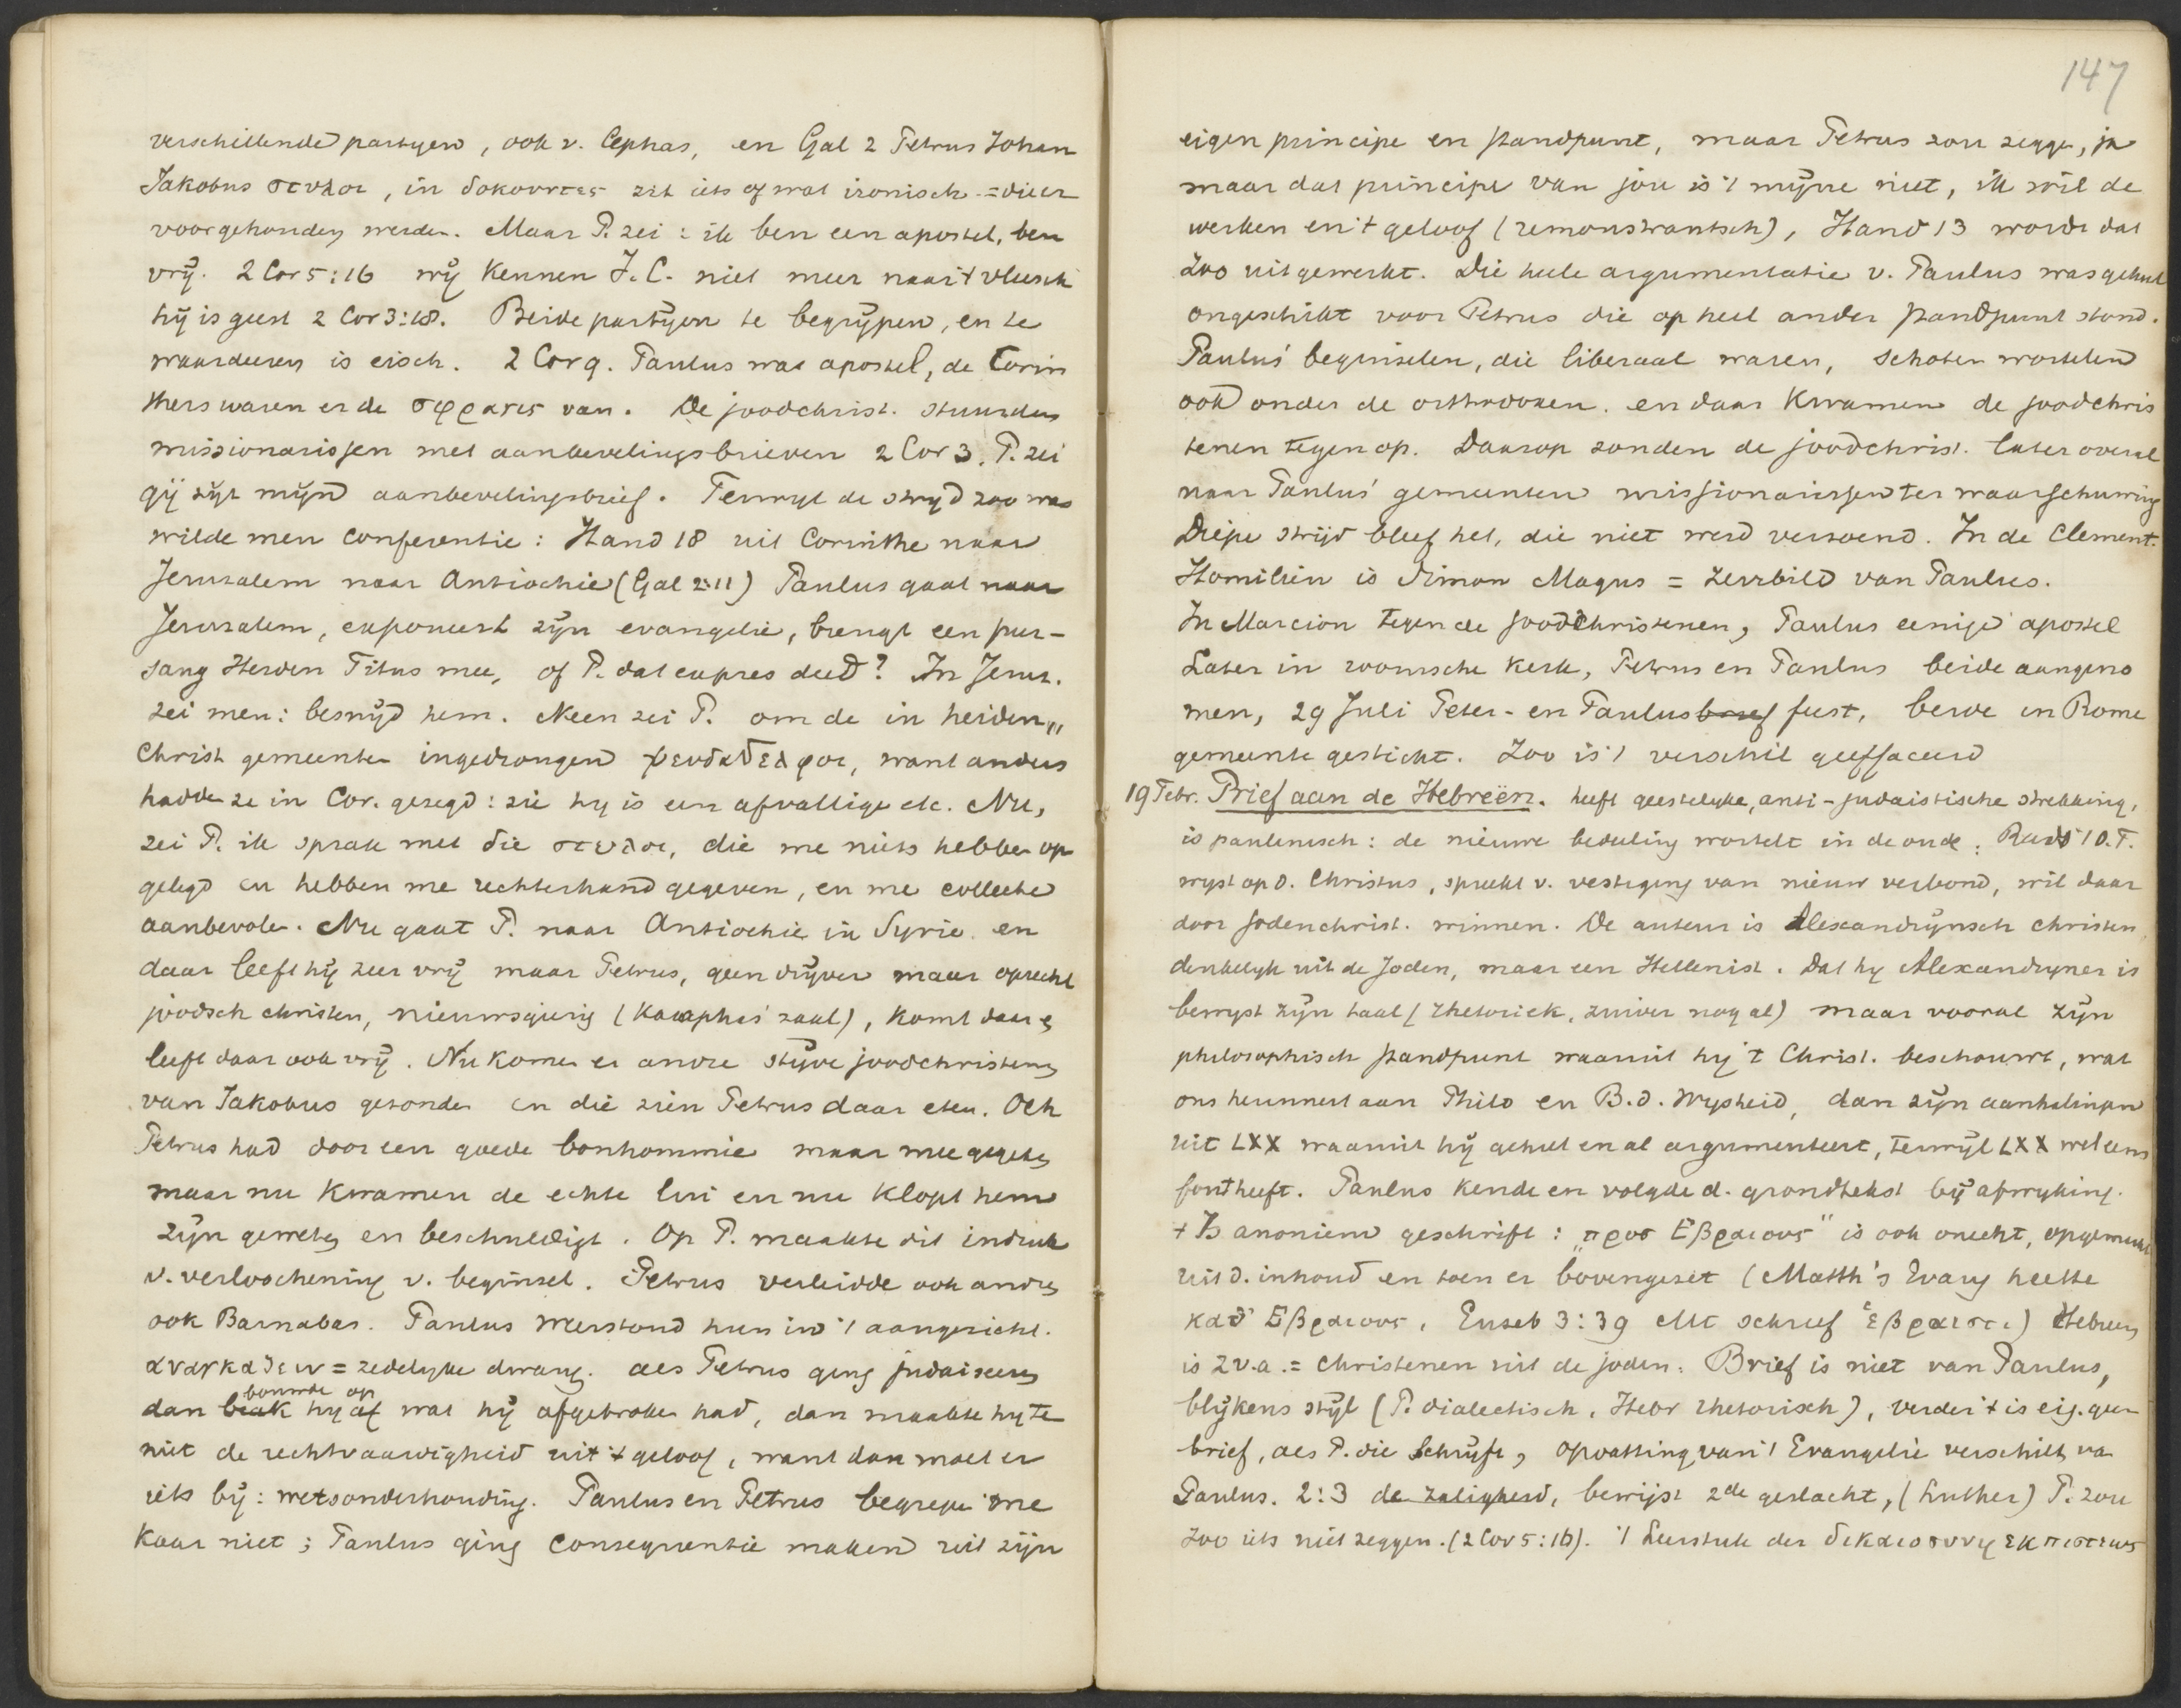 verschillende partijen, ook v. Cephas, en Gal 2 Petrus Johan
Jakobus στυλοι, in δοκουντες zit iets of wat ironisch = die er
voor gehouden werden. Maar P. zei: ik ben een apostel, ben
vrij. 2 Cor 5:16 wij kennen J.C. niet meer naar 't vleesch
hij is geest 2 Cor 3:18. Beide partijen te begrijpen, en te
waardeeren is eisch. 2 Cor 9. Paulus was apostel, de Corin
thers waren er de σφραγις van. De joodchrist. stuurden
missionarissen met aanbevelingsbrieven 2 Cor 3. P. zei
gij zijt mijn aanbevelingsbrief. Terwijl de strijd zoo was
wilde men conferentie: Hand 18 uit Corinthe naar
Jerusalem naar Antiochie (Gal 2:11) Paulus gaat naar
Jerusalem, exponeert zijn evangelie, brengt een pur-
sang Heiden Titus mee, of P. dat expres deed? In Jerus.
zei men: besnijd hem. Neen zei P. om de in heiden„
christ gemeenten ingedrongen ψευδαδελφοι, want anders
hadden ze in Cor. gezegd: zie hy is een afvallige etc. Nu,
zei P. ik sprak met die στυλοι, die me niets hebben op
gelegd en hebben me rechterhand gegeven, en me collecte
aanbevolen. Nu gaat P. naar Antiochie in Syrie en
daar leeft hij zeer vrij maar Petrus, geen drijver maar oprecht
joodsch christen, nieuwsgierig (Kajaphas' zaal), komt daar en
leeft daar ook vrij. Nu komen er andre stijve joodchristenen
van Jakobus gezonden en die zien Petrus daar eten. Och
Petrus had door een goede bonhommie maar mee gegeten
maar nu kwamen de echte lui en nu klopt hem
zijn geweten en beschuldigt. Op P. maakte dit indruk
v. verloochening v. beginsel. Petrus verleidde ook andren
ook Barnabas. Paulus weerstond hun in 't aangezicht.
αναγκαζειν = zedelijke dwang. als Petrus ging judaiseeren
dan brak hy af bouwde op wat hij afgebroken had, dan maakte hy te
niet de rechtvaardigheid uit 't geloof, want dan moet er
iets bij: wetsonderhouding. Paulus en Petrus begrepen me
kaar niet; Paulus ging consequentie maken uit zijn
147
eigen principe en standpunt, maar Petrus zou zeggen, ja
maar dat principe van jou is 't mijne niet, ik wil de
werken en 't geloof (remonstrantsch), Hand 13 wordt dat
zoo uitgewerkt. Die heele argumentatie v. Paulus was geheel
ongeschikt voor Petrus die op heel ander standpunt stond.
Paulus' beginselen, die liberaal waren, schoten wortelen
ook onder de orthodoxen. en daar kwamen de joodchris
tenen tegen op. Daarop zonden de joodchrist. later overal
naar Paulus' gemeenten missionarissen ter waarschuwing
Diepe strijd bleef het, die niet werd verzoend. In de Clement.
Homiliën is Simon Magus = zerrbild van Paulus.
In Marcion tegen de joodchristenen, Paulus eenige apostel
Later in roomsche kerk, Petrus en Paulus beide aangeno
men, 29 Juli Peter- en Paulusbrief feest, beide in Rome
gemeente gesticht. Zoo is 't verschil geeffaceerd
19 Febr. Brief aan de Hebreën. heeft geestelyke, anti-judaistische strekking,
is paulinisch: de nieuwe bedeeling wortelt in de oude: Reeds 't O.T.
wyst op d. Christus, spreekt v. vestiging van nieuw verbond, wil daar
door jodenchrist. winnen. De auteur is Alexandrijnsch christen
denkelyk uit de Joden, maar een Hellenist. Dat hy Alexandryner is
bewyst zijn taal (rhetoriek, zuiver nog al) maar vooral zijn
philosophisch standpunt waaruit hij 't Christ. beschouwt, wat
ons herinnert aan Philo en B.d. Wysheid, dan zijn aanhalingen
uit LXX waaruit hij geheel en al argumenteert, terwijl LXX wel eens
fout heeft. Paulus kende en volgde d. grondtekst bij afwyking.
't Is anoniem geschrift: „προσ Εβραιους" is ook onecht, opgemaakt
uit d. inhoud en toen er bovengezet (Matth's Evang heette
καθ' Εβραιους, Euseb 3:39 Mt schreef Ἑβραιστι) Hebreen
is z.v.a. = christenen uit de joden: Brief is niet van Paulus,
blijkens stijl (P. dialectisch, Hebr rhetorisch), verder 't is eig. geen
brief, als P. die schrijft, opvatting van 't Evangelie verschilt van
Paulus. 2:3 de zaligheid, bewijst 2de geslacht, (Luther) P. zou
zoo iets niet zeggen. (2 Cor 5:16). 't Leerstuk der δικαιοσυνη εκ πιστεως